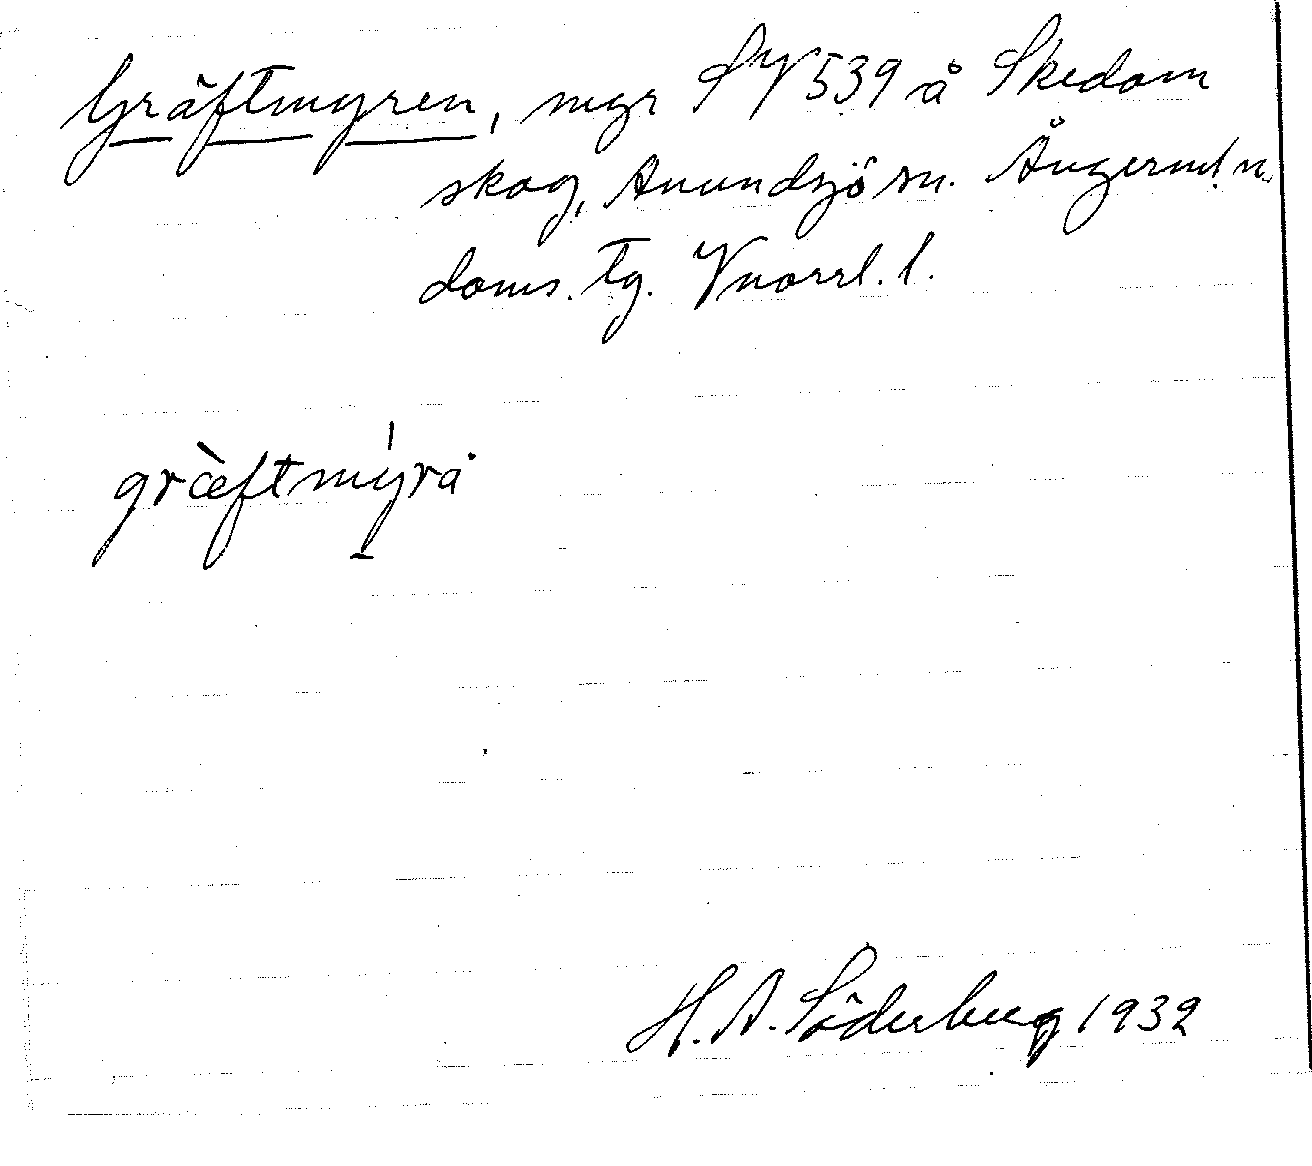 Gräftmyren, myr SV 539 å Skedom
skog, Anundsjö sn. Ångerml. n.
doms. tg. Vnorrl. l.
græ̀ftmýrȧ
H. A. Söderberg 1932